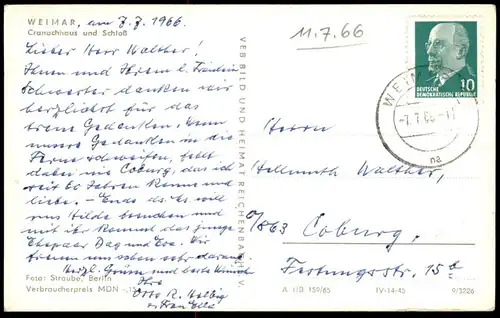 WEIMAR, am 7.7.1966.
Cranachhaus und Schloß
Lieber Herr Walther!
Ihnen und Ihrem l. Fräulein
Schwester danken wir
herzlichst für das
treue Gedenken. Wenn
unsere Gedanken in die
Ferne schweifen, fehlt
dabei nie Coburg, das ich
seit 60 Jahren kenne und
liebe. – Ende des Js. will
uns Hilde besuchen und
mit ihr kommt das junge
Ehepaar Dag und Eva. Wir
freuen uns sehr darauf.
Herzl. Grüsse und beste Wünsche
Ihre
Otto R. Helbig
u. Frau Elli
Foto: Straube, Berlin
Verbraucherpreis MDN -,15
VEB BILD UND HEIMAT REICHENBACH I. V.
11.7.66
10
DEUTSCHE
DEMOKRATISCHE REPUBLIK
WEIMAR
-7.7.66-17
na
Herrn
Hellmuth Walther,
863 Coburg,
Festungsstr. 15
A 1/B 159/65 IV-14-45 9/3226